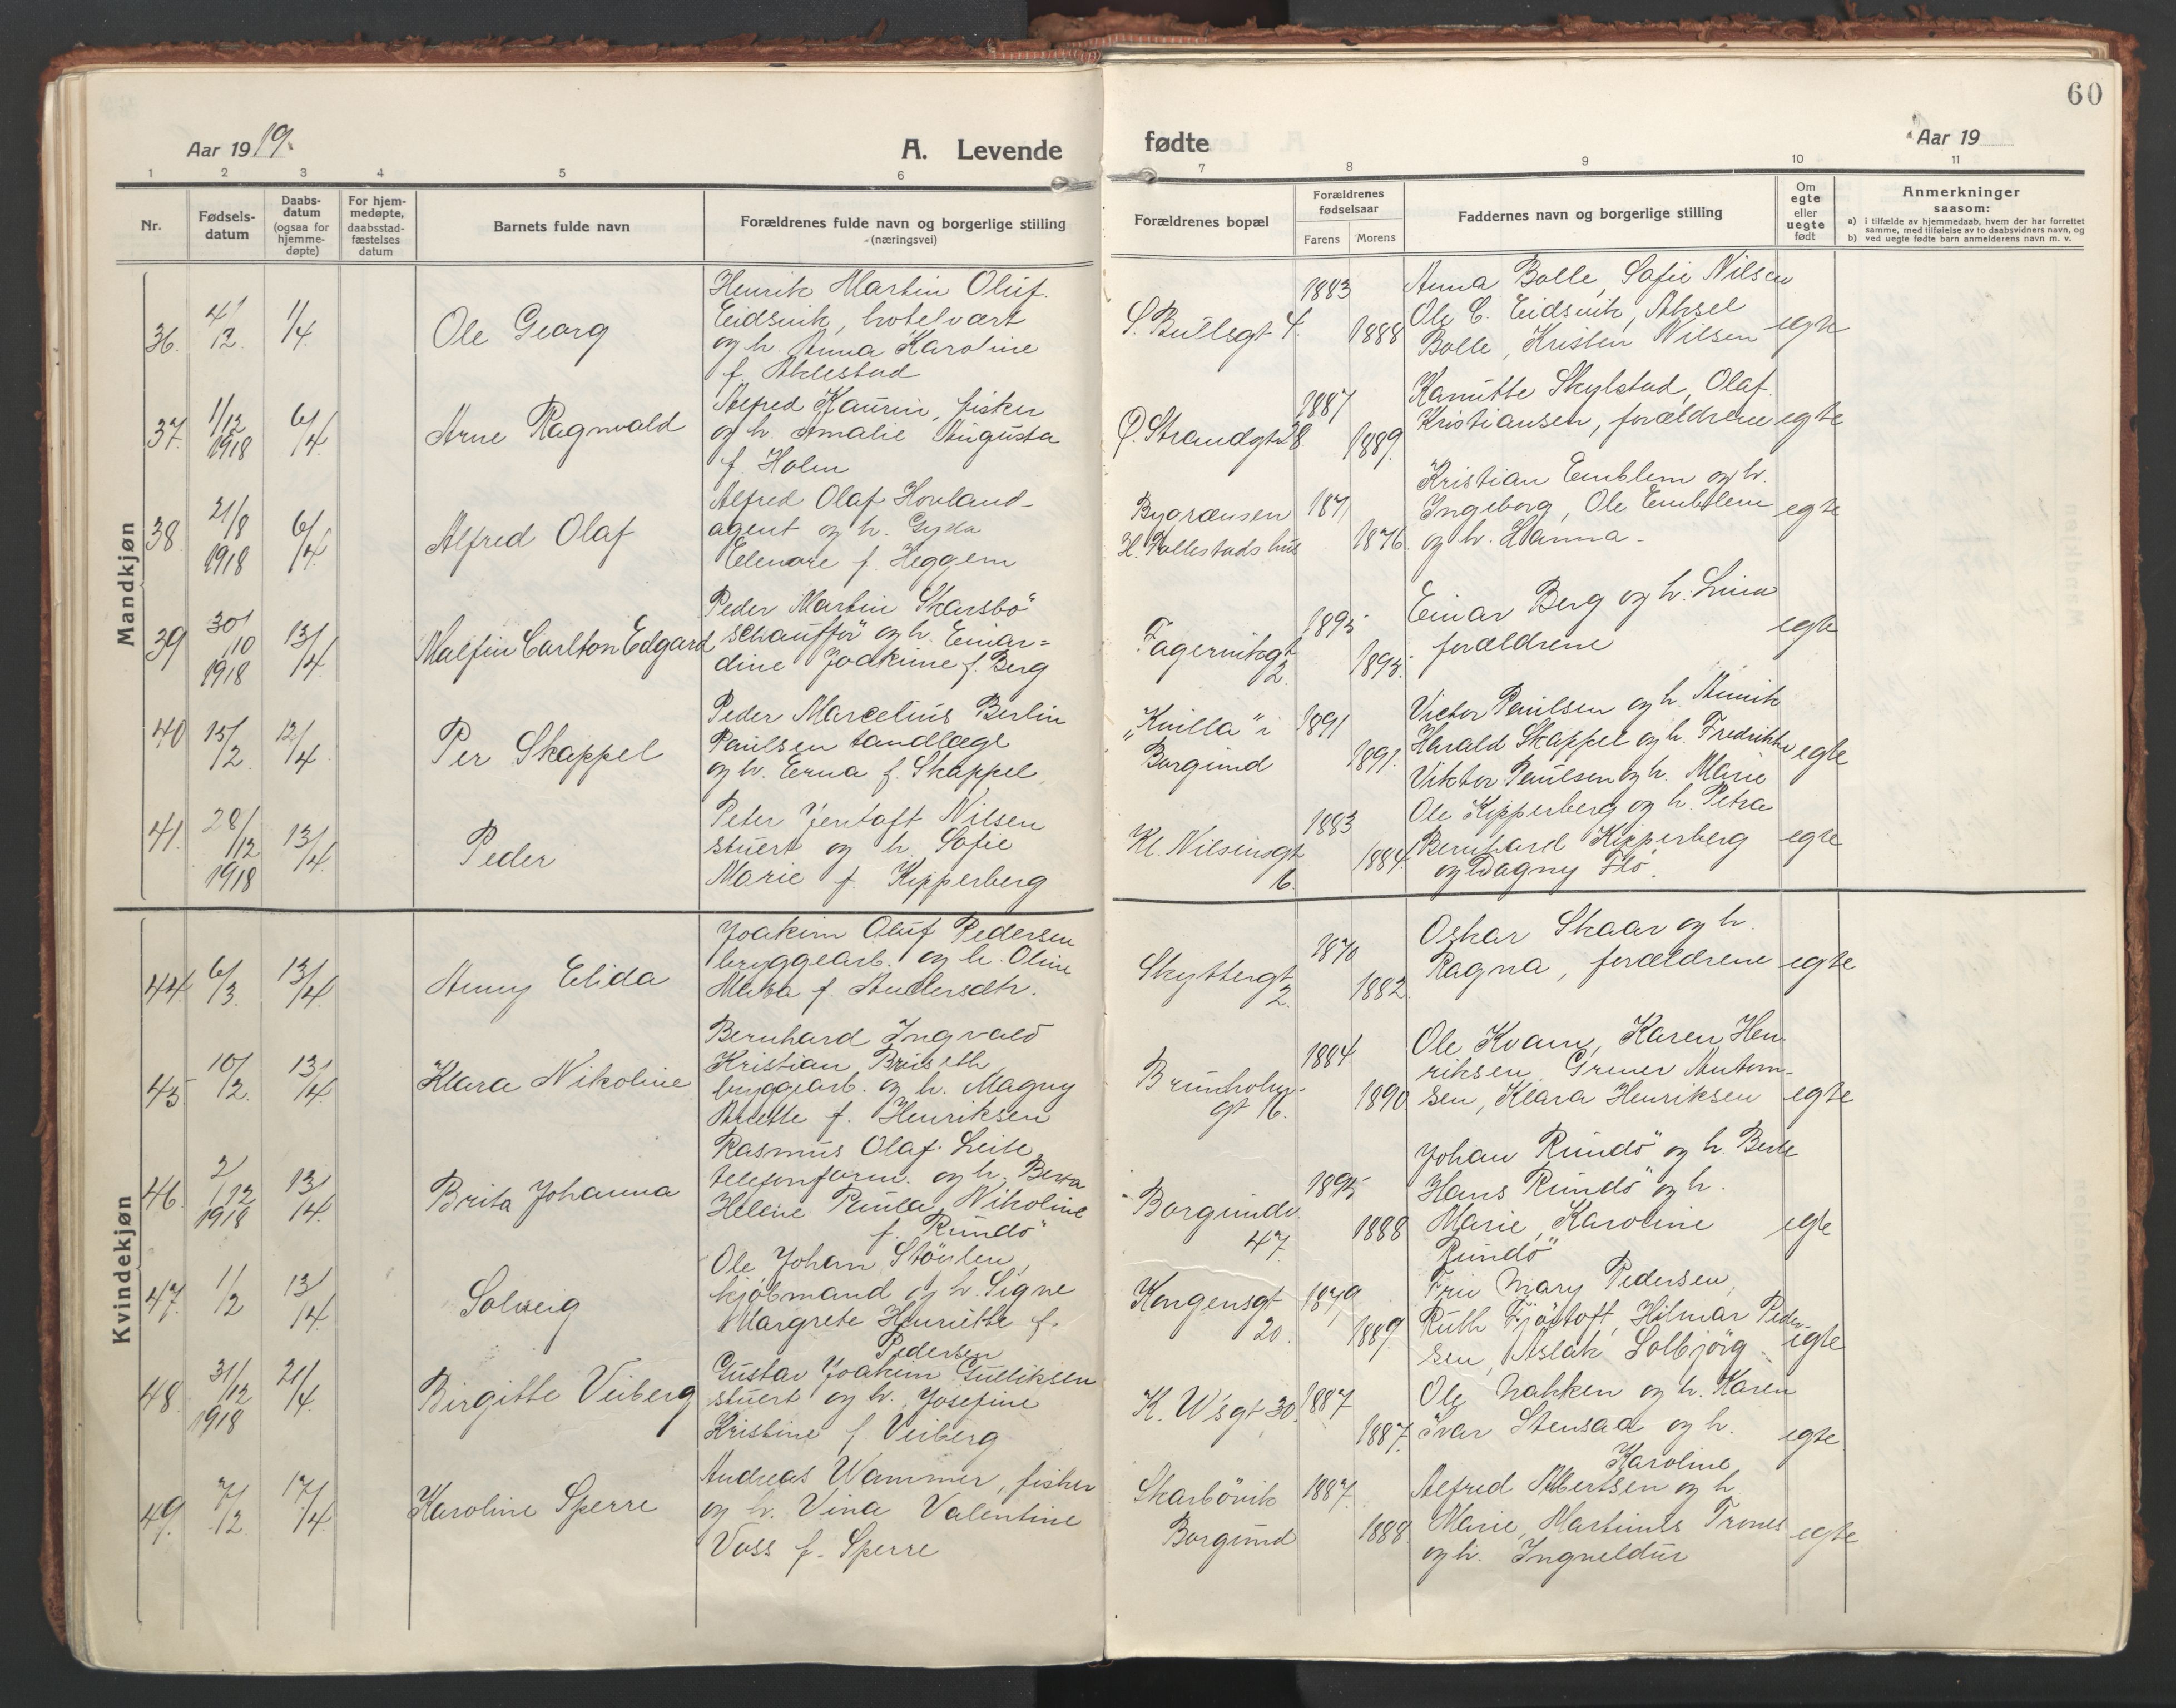 60
Aar 1919.
A. Levende
fødte
Aar 19
1 2 3 4 5 6 7 8 9 10 11
Nr.
Fødsels-
datum
Daabs-
datum
(ogsaa for
hjemme-
døpte)
For hjem-
medøpte,
daabsstad-
fæstelses
datum
Barnets fulde navn
Forældrenes fulde navn og borgerlige stilling
(næringsvei)
Forældrenes bopæl
Forældrenes
fødselsaar
Farens Morens
Faddernes navn og borgerlige stilling
Om
egte
eller
uegte
født
Anmerkninger
saasom:
a) i tilfælde av hjemmedaab, hvem der har forrettet
samme, med tilføielse av to daabsvidners navn, og
b) ved uegte fødte barn anmelderens navn m. v.
Mandkjøn
36. 4/12. 1/4 Ole Georg
Henrik Martin Oluf
Eidsvik, hotelvært
og h. Anna Karoline
f.
S. Bullsgt 4. 1883 1888
Anna Bolle, Sofie Nilsen
Ole C. Eidsvik, Aksel
Bolle, Kristen Nilsen
egte
37. 1/12 1918 6/4. Arne Ragnvald
Alfred Kaurin, fisker
og h. Amalie Augusta
f. Holm
Ø. Strandgt 28. 1887 1889.
Kamitte Skylstad, Olaf
Kristiansen, forældrene
egte
38 21/8 1918 6/4. Alfred Olaf
Alfred Olaf Hovland
agent og h. Gyda
Elenore f. Heggem
Bygrænsen
H. Tollestads hus
1871 1876.
Kristian Emblem og h.
Ingeborg, Ole Emblem
og h. Hanna
egte
39 30/10 1918 13/4 Malfin Carlton Edgard
Peder Martin Skarsbö
schaufför og h. Einar=
dine Joakime f. Berg
Fagervikgt
2.
1895 1895.
Einar Berg og h. Lina
forældrene
egte
40 15/2. 12/4 Per Skappel
Peder Marcelius Berlin
Paulsen tandlæge
og h. Erna f. Skappel
„Kvilla" i
Borgund
1891 1891.
Victor Paulsen og h.
Harald Skappel og h. Fredrikke
Viktor Paulsen og h. Marie
egte
41. 28/12 1918 13/4. Peder
Peter Jentoft Nilsen
stuert og h. Sofie
Marie f. Kipperberg
Kl. Nilsensgt
16.
1883 1884.
Ole Kipperberg og h. Petra
Bernhard Kipperberg
og Dagny Flö.
egte
Kvindekjøn
44 6/3. 13/4 Anny Elida
Joakim Oluf Pedersen
bryggearb. og h. Oline
f. Andersdtr.
Skyttergt
2.
1870 1882.
Oskar Skaar og h.
Ragna, forældrene
egte
45 10/2. 13/4 Klara Nikoline
Bernhard Ingvald
Kristian Brüseth
bryggearb. og h. Magny
f. Henriksen
Brunholm-
gt 16.
1884. 1890
Ole Kvam, Karen Hen-
riksen, Antom-
sen, Klara Henriksen
egte
46. 2/12 1918 13/4. Brita Johanna
Rasmus Olaf Leite
telefonform. og h. Bera
Helene Paula Nikoline
f. Rundö
Borgundv.
47
1895 1888
Johan Rundö og h. Berte
Hans Rundö og h.
Marie, Karoline
Rundö
egte
47. 1/2 13/4. Solveig
Ole Johan Stöylen
kjøbmand og h. Signe
Margrete Henriette f.
Pedersen
Kongensgt
20.
1879 1889.
Fru Mary Pedersen,
Ruth Fjørtoft, Hilmar Peder-
sen, Aslak Solbjörg
egte
48. 31/12 1918 21/4. Birgitte Veiberg
Gustav Joakim Gulliksen
stuert og h. Josefine
Kristine f. Veiberg
K. W'sgt 30. 1887 1887.
Ole Nakken og h. Karen
Ivar Stensaa og h.
Karoline
egte
49. 7/2 17/4 Karoline Sperre
Andreas Wammer, fisker
og h. Vina Valentine
Voss f. Sperre
Skarbövik
Borgund
1887. 1888.
Alfred Albertsen og h.
Marie, Martinus Trones
og h. Ingveldur
egte